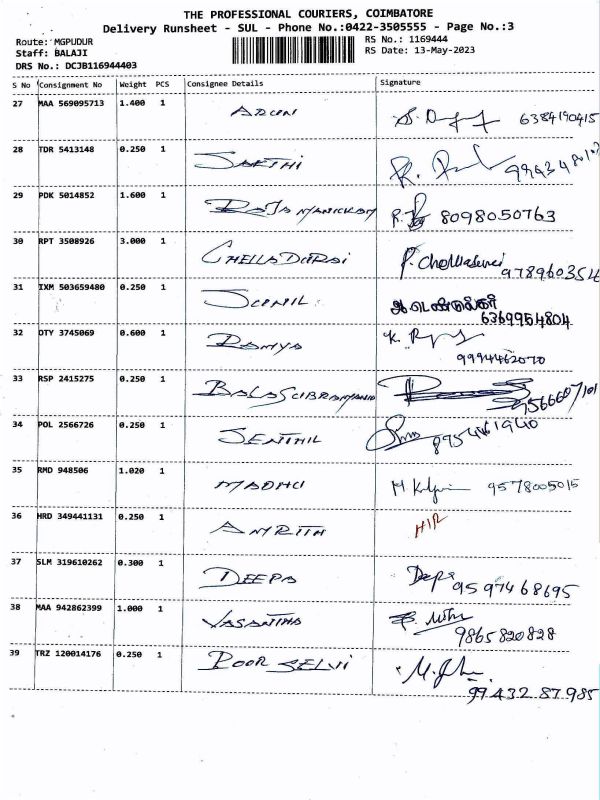 THE PROFESSIONAL COURIERS, COIMBATORE
Delivery Runsheet - SUL - Phone No.:0422-3505555 - Page No.:3
Route: MGPUDUR RS No.: 1169444
Staff: BALAJI RS Date: 13-May-2023
DRS No.: DCJB116944403
S No Consignment No Weight PCS Consignee Details Signature
27 MAA 569095713 1.400 1 ARUN 6384190415
28 TDR 5413148 0.250 1 SAKTHI
29 PDK 5014852 1.600 1 RAJAMANICKAM 8098050763
30 RPT 3508926 3.000 1 CHELLADURAI P. Chelladurai 9789603546
31 IXM 503659480 0.250 1 SUNIL 6369954804
32 DTY 3745069 0.600 1 RAMYA 9994462070
33 RSP 2415275 0.250 1 BALASUBRAMANIM
34 POL 2566726 0.250 1 SENTHIL 8954461940
35 RMD 948506 1.020 1 MADHU 9578005015
36 HRD 349441131 0.250 1 AMRITH
37 SLM 319610262 0.300 1 DEEPA Deepa 9597468695
38 MAA 942862399 1.000 1 VASANTHA 9865820828
39 TRZ 120014176 0.250 1 POOR SELVI 99432 87985